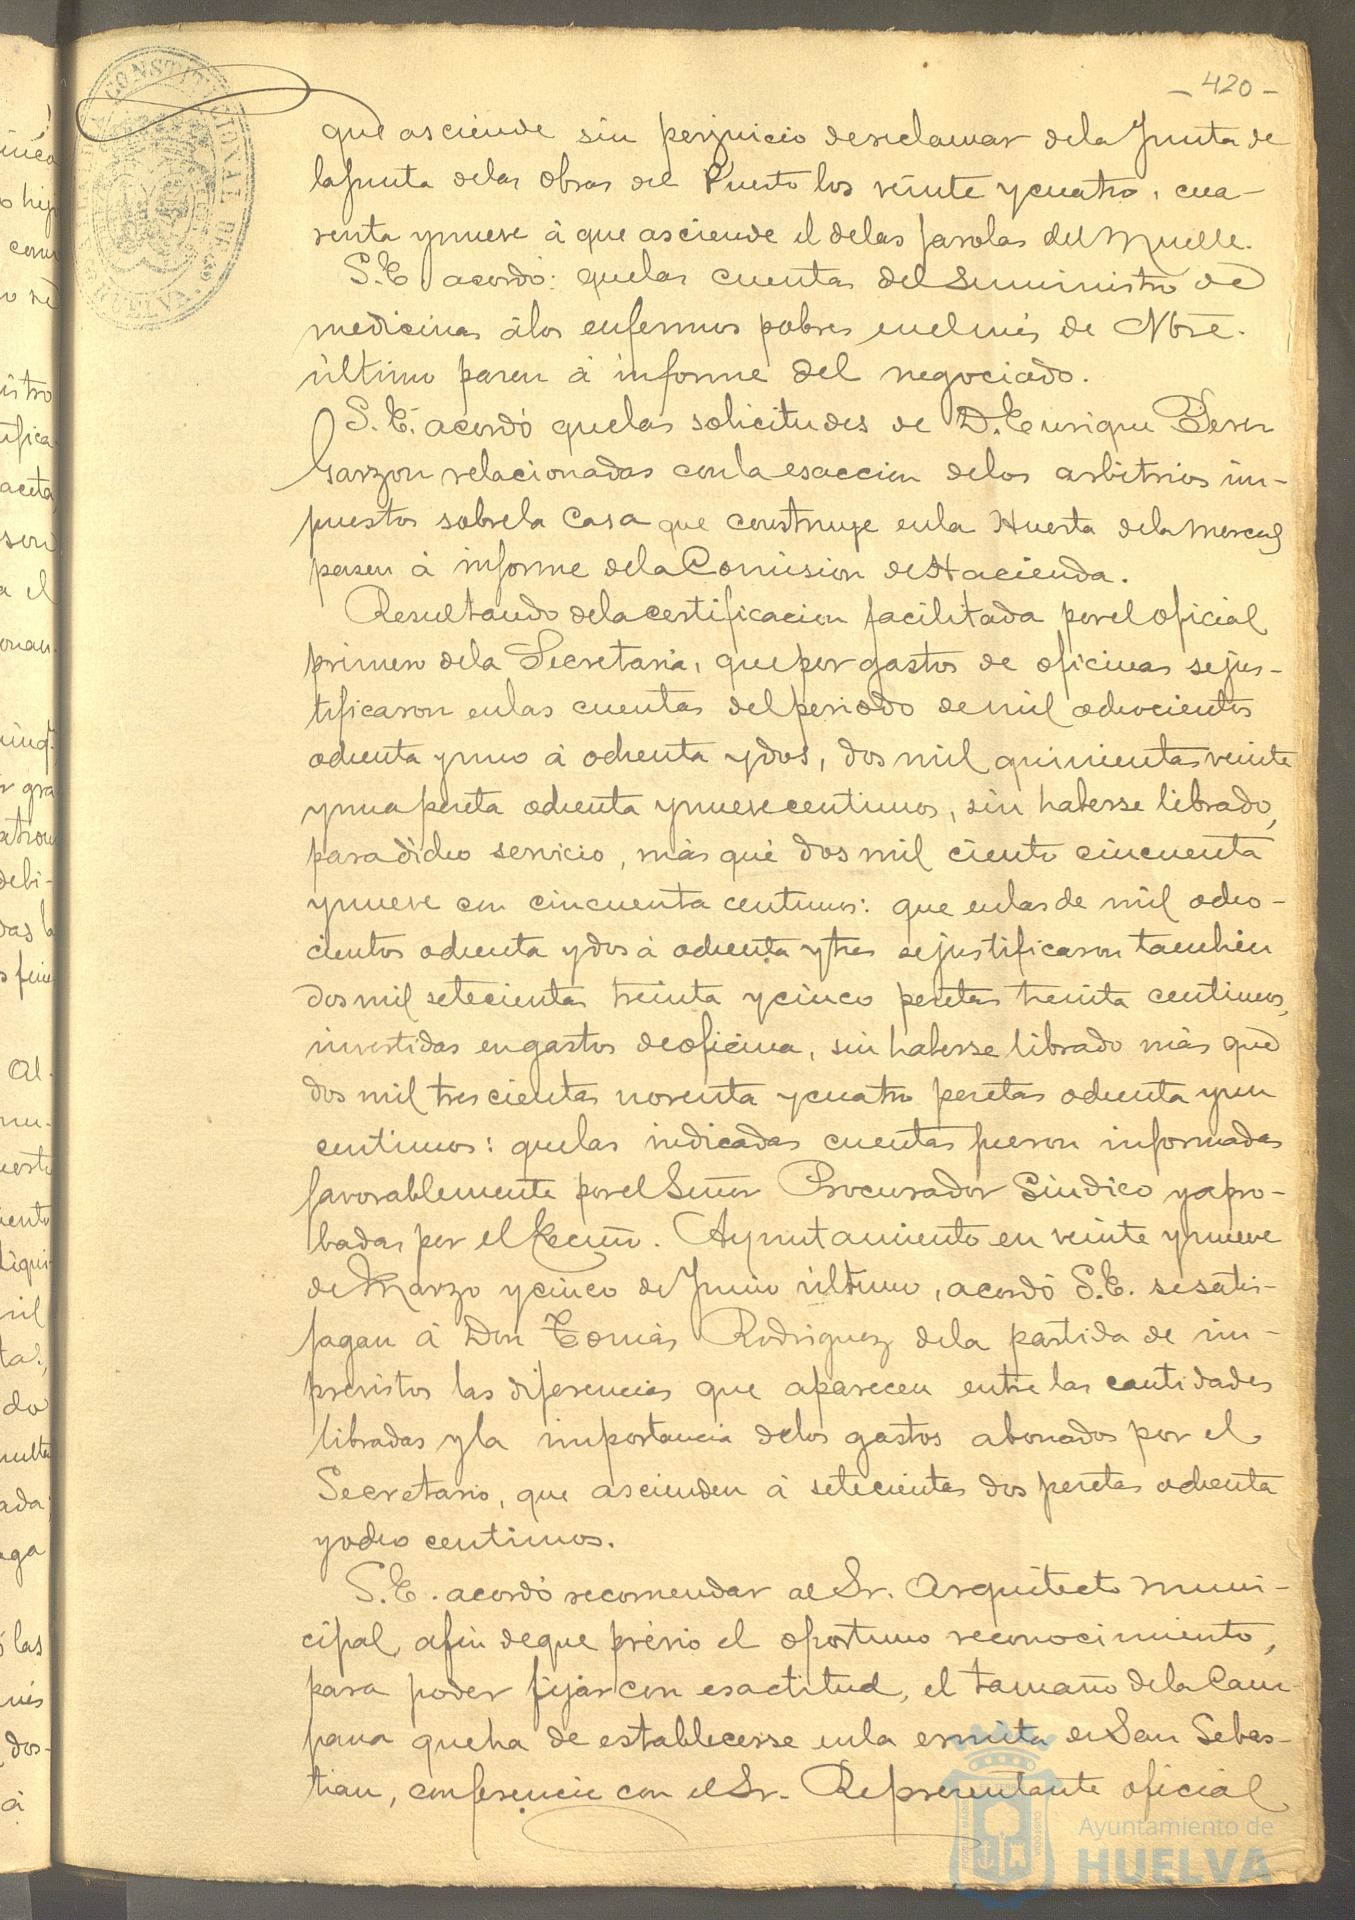 - 420 -
que asciende sin perjuicio de reclamar de la Junta de
la Junta de las obras del Puerto los veinte y cuatro, cua-
renta y nueve á que asciende el de las farolas del Muelle.
S.E. acordó: que las cuentas del suministro de
medicinas á los enfermos pobres en el mes de Nbre.
último pasen á informe del negociado.
S.E. acordó que las solicitudes de D. Enrique Perez
Garzon relacionadas con la esaccion de los arbitrios im-
puestos sobre la Casa que construye en la Huerta de la Merced
pasen á informe de la Comision de Hacienda.
Resultando de la certificacion facilitada por el oficial
primero de la Secretaria, que por gastos de oficinas se jus-
tificaron en las cuentas del periodo de mil ochocientos
ochenta y uno á ochenta y dos, dos mil quinientas veinte
y una peseta ochenta y nueve centimos, sin haberse librado,
para dicho servicio, más que dos mil ciento cincuenta
y nueve con cincuenta centimos: que en las de mil ocho-
cientos ochenta y dos á ochenta y tres se justificaron tambien
dos mil setecientas treinta y cinco pesetas treinta centimos,
invertidas en gastos de oficina, sin haberse librado más que
dos mil trescientas noventa y cuatro pesetas ochenta y un
centimos: que las indicadas cuentas fueron informadas
favorablemente por el Señor Procurador Sindico y apro-
badas por el Excmo. Ayuntamiento en veinte y nueve
de Marzo y cinco de Junio último, acordó S.E. se satis-
fagan á Don Tomás Rodriguez de la partida de im-
previstos las diferencias que aparecen entre las cantidades
libradas y la importancia de los gastos abonados por el
Secretario, que ascienden á setecientas dos pesetas ochenta
y ocho centimos.
S.E. acordó recomendar al Sr. Arquitecto muni-
cipal, afin de que prévio el oportuno reconocimiento,
para poder fijar con esactitud, el tamaño de la Cam-
pana que ha de establecerse en la ermita de San Sebas-
tian, conferencie con el Sr. Representante oficial
CONSTITUCIONAL DE
HUELVA
Ayuntamiento de
HUELVA